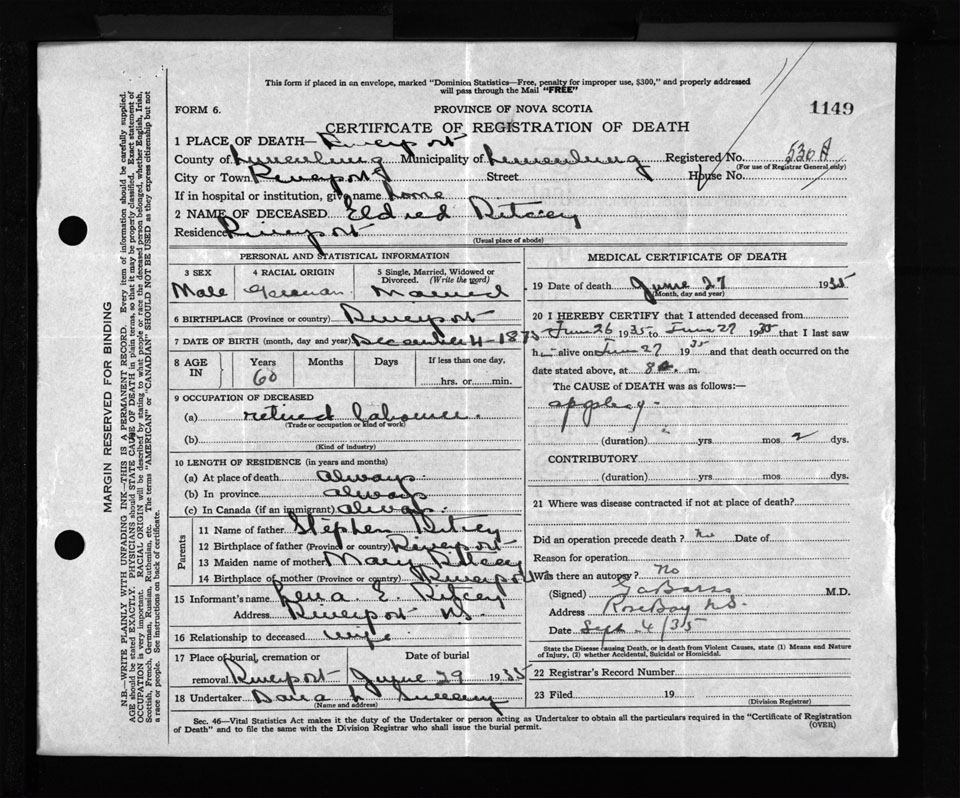 This form if placed in an envelope, marked "Dominion Statistics—Free, penalty for improper use, $300," and properly addressed
will pass through the Mail "FREE"
FORM 6. PROVINCE OF NOVA SCOTIA 1149
CERTIFICATE OF REGISTRATION OF DEATH
1 PLACE OF DEATH— Riverport
County of Lunenburg Municipality of Lunenburg Registered No. 530 A
(For use of Registrar General only)
City or Town Riverport Street House No.
If in hospital or institution, give name home
2 NAME OF DECEASED Eldred Ritcey
Residence Riverport
(Usual place of abode)
PERSONAL AND STATISTICAL INFORMATION
3 SEX 4 RACIAL ORIGIN 5 Single, Married, Widowed or Divorced. (Write the word)
Male German Married
6 BIRTHPLACE (Province or country) Riverport
7 DATE OF BIRTH (month, day and year) December 4 1875
8 AGE IN Years Months Days If less than one day,
60 hrs. or min.
9 OCCUPATION OF DECEASED
(a) retired labourer.
(Trade or occupation or kind of work)
(b)
(Kind of industry)
10 LENGTH OF RESIDENCE (in years and months)
(a) At place of death always
(b) In province always
(c) In Canada (if an immigrant) always
Parents
11 Name of father Stephen Ritcey
12 Birthplace of father (Province or country) Riverport
13 Maiden name of mother Mary Ritcey
14 Birthplace of mother (Province or country) Riverport
15 Informant's name Lena E. Ritcey
Address Riverport NS
16 Relationship to deceased wife
17 Place of burial, cremation or removal Date of burial
Riverport June 29 1935
18 Undertaker
(Name and address)
MEDICAL CERTIFICATE OF DEATH
19 Date of death June 27 1935
(Month, day and year)
20 I HEREBY CERTIFY that I attended deceased from
June 26 1935 to June 27 1935 that I last saw
h alive on June 27 1935 and that death occurred on the
date stated above, at 8 a. m.
The CAUSE of DEATH was as follows:—
apoplexy
(duration) yrs mos 2 dys.
CONTRIBUTORY
(duration) yrs mos dys.
21 Where was disease contracted if not at place of death?
Did an operation precede death? no Date of
Reason for operation
Was there an autopsy? No
(Signed) M.D.
Address Rose Bay N.S.
Date Sept. 4/35
State the Disease causing Death, or in death from Violent Causes, state (1) Means and Nature
of Injury, (2) whether Accidental, Suicidal or Homicidal.
22 Registrar's Record Number
23 Filed 19
(Division Registrar)
Sec. 46—Vital Statistics Act makes it the duty of the Undertaker or person acting as Undertaker to obtain all the particulars required in the "Certificate of Registration
of Death" and to file the same with the Division Registrar who shall issue the burial permit. (OVER)
MARGIN RESERVED FOR BINDING
N.B.—WRITE PLAINLY WITH UNFADING INK—THIS IS A PERMANENT RECORD. Every item of information should be carefully supplied.
AGE should be stated EXACTLY. PHYSICIANS should STATE CAUSE OF DEATH in plain terms, so that it may be properly classified. Exact statement of
OCCUPATION is very important. RACIAL ORIGIN will be described by stating to what people or race the deceased person belonged, whether English, Irish,
Scottish, French, German, Russian, Ruthenian, etc. The terms "AMERICAN" or "CANADIAN" SHOULD NOT BE USED as they express citizenship but not
a race or people. See instructions on back of certificate.